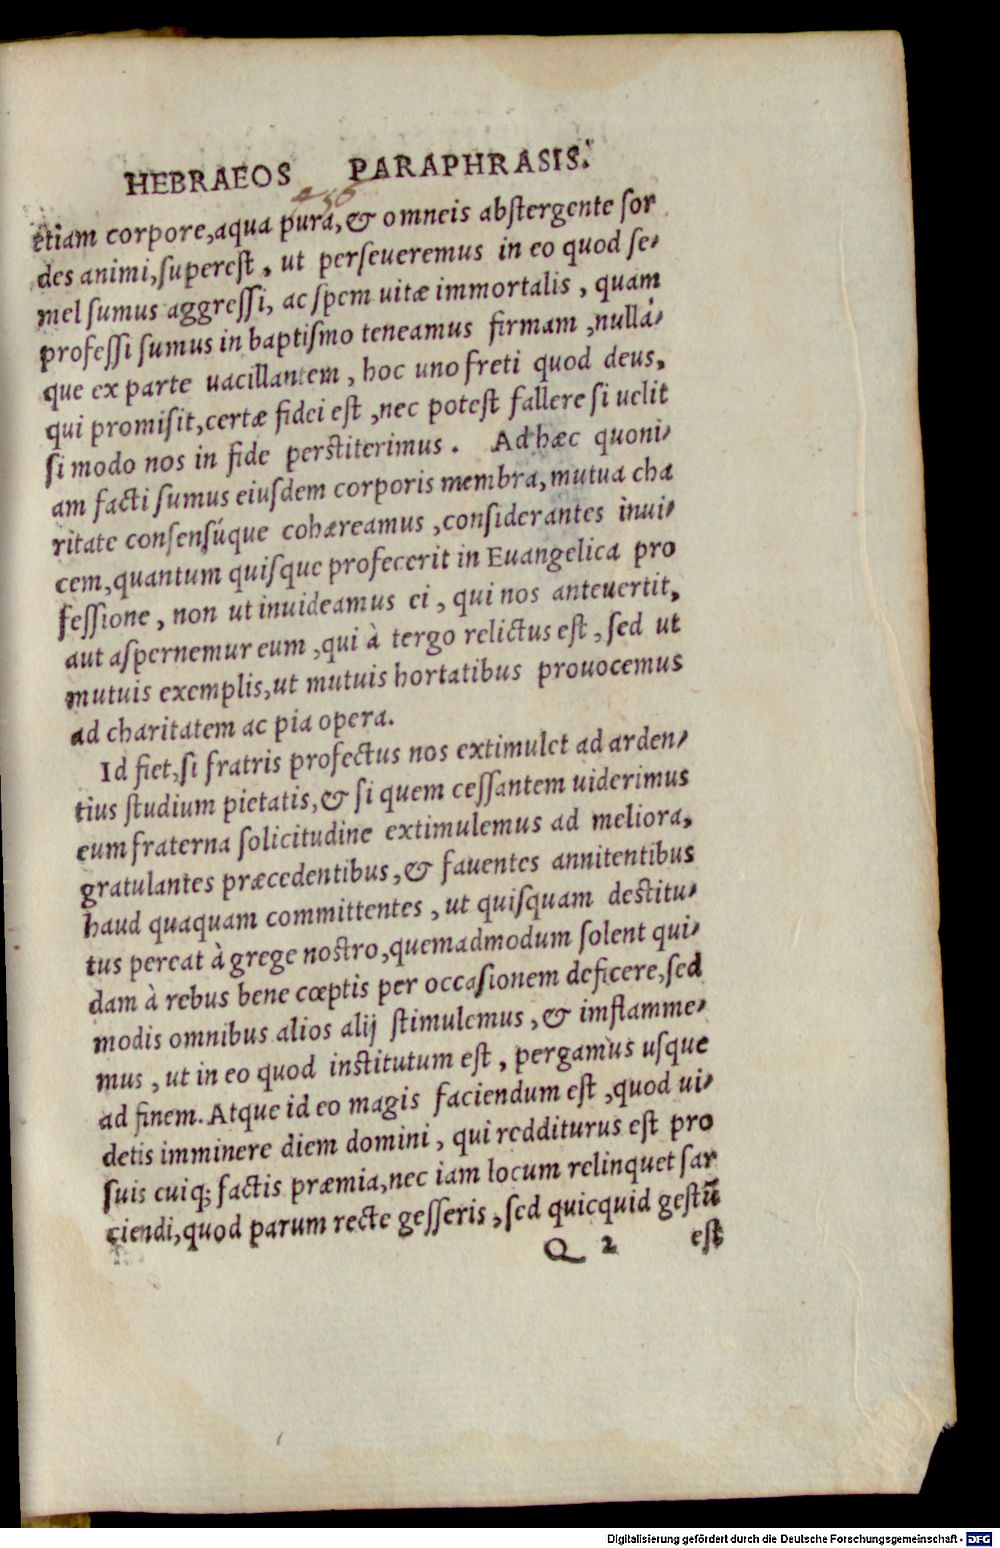 HEBRAEOS PARAPHRASIS.
etiam corpore, aqua pura, & omneis abſtergente ſor
des animi, ſupereſt, ut perſeueremus in eo quod ſe-
mel ſumus aggreſſi, ac ſpem uitæ immortalis, quam
profeſſi ſumus in baptiſmo teneamus firmam, nullá-
que ex parte uacillantem, hoc uno freti quod deus,
qui promiſit, certæ fidei eſt, nec poteſt fallere ſi uelit
ſi modo nos in fide perstiterimus. Ad hæc quoni-
am facti ſumus eiuſdem corporis membra, mutua cha
ritate conſenſúque cohæreamus, conſiderantes inui-
cem, quantum quiſque profecerit in Euangelica pro
feſſione, non ut inuideamus ei, qui nos anteuertit,
aut aſpernemur eum, qui à tergo relictus eſt, ſed ut
mutuis exemplis, ut mutuis hortatibus prouocemus
ad charitatem ac pia opera.
Id fiet, ſi fratris profectus nos extimulet ad arden-
tius ſtudium pietatis, & ſi quem ceſſantem uiderimus
eum fraterna ſolicitudine extimulemus ad meliora,
gratulantes præcedentibus, & fauentes annitentibus
haud quaquam committentes, ut quiſquam destitu-
tus pereat à grege nostro, quemadmodum ſolent qui-
dam à rebus bene cœptis per occaſionem deficere, ſed
modis omnibus alios alij ſtimulemus, & inflamme-
mus, ut in eo quod institutum eſt, pergamus uſque
ad finem. Atque id eo magis faciendum eſt, quod ui-
detis imminere diem domini, qui redditurus eſt pro
ſuis cuiq; factis præmia, nec iam locum relinquet ſar
ciendi, quod parum recte geſſeris, ſed quicquid geſtū
Q 2 eſt
Digitalisierung gefördert durch die Deutsche Forschungsgemeinschaft - DFG